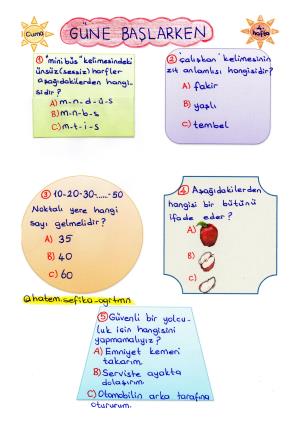 Cuma
GÜNE BAŞLARKEN
4. hafta
① "minibüs" kelimesindeki
ünsüz(sessiz) harfler
aşağıdakilerden hangi-
sidir?
A) m-n-d-ü-s
B) m-n-b-s
C) m-t-i-s
② "çalışkan" kelimesinin
zıt anlamlısı hangisidir?
A) fakir
B) yaşlı
C) tembel
③ 10-20-30-......-50
Noktalı yere hangi
sayı gelmelidir?
A) 35
B) 40
C) 60
④ Aşağıdakilerden
hangisi bir bütünü
ifade eder?
A)
B)
C)
@hatem.sefika_ogrtmn
⑤ Güvenli bir yolcu-
luk için hangisini
yapmamalıyız?
A) Emniyet kemeri
takarım.
B) Serviste ayakta
dolaşırım.
C) Otomobilin arka tarafına
otururum.